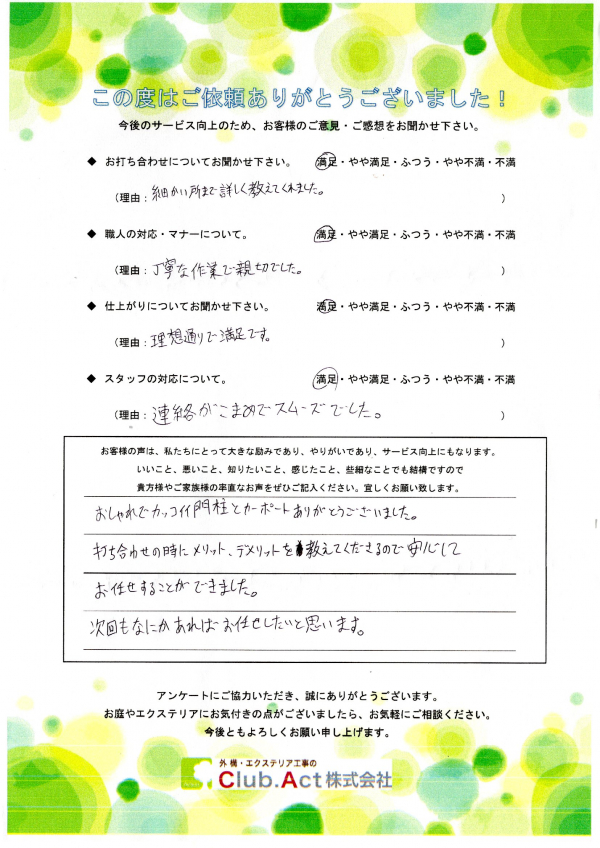 この度はご依頼ありがとうございました!
今後のサービス向上のため、お客様のご意見・ご感想をお聞かせ下さい。
◆ お打ち合わせについてお聞かせ下さい。 満足・やや満足・ふつう・やや不満・不満
(理由:細かい所まで詳しく教えてくれました。 )
◆ 職人の対応・マナーについて。 満足・やや満足・ふつう・やや不満・不満
(理由:丁寧な作業で親切でした。 )
◆ 仕上がりについてお聞かせ下さい。 満足・やや満足・ふつう・やや不満・不満
(理由:理想通りで満足です。 )
◆ スタッフの対応について。 満足・やや満足・ふつう・やや不満・不満
(理由:連絡がこまめでスムーズでした。 )
お客様の声は、私たちにとって大きな励みであり、やりがいであり、サービス向上にもなります。
いいこと、悪いこと、知りたいこと、感じたこと、些細なことでも結構ですので
貴方様やご家族様の率直なお声をぜひご記入ください。宜しくお願い致します。
おしゃれでカッコイイ門柱とカーポートありがとうございました。
打ち合わせの時にメリット、デメリットを教えてくださるので安心して
お任せすることができました。
次回もなにかあればお任せしたいと思います。
アンケートにご協力いただき、誠にありがとうございます。
お庭やエクステリアにお気付きの点がございましたら、お気軽にご相談ください。
今後ともよろしくお願い申し上げます。
外構・エクステリア工事の
Club.Act株式会社